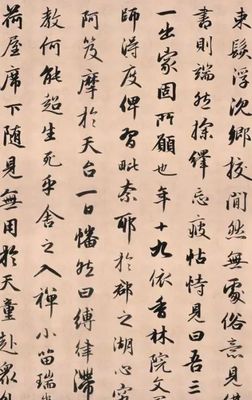 東髮浮沈鄉校間然無處俗意見佛
書則端然探繹忘疲怙恃見曰吾三
一出家固所願也年十九依香林院文
師得度俾習毗奈耶於郡之湖心寓
阿笈摩於天台一日幡然曰縛律滯
教何能超生死乎舍之入禪小笛瑞
荷屋席下隨見無用於天童赴眾